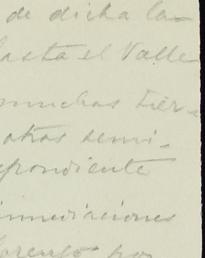 de dicha la-
hasta el Valle
muchas tier-
otras semi-
spondiente
inmediaciones
Lorenzo por